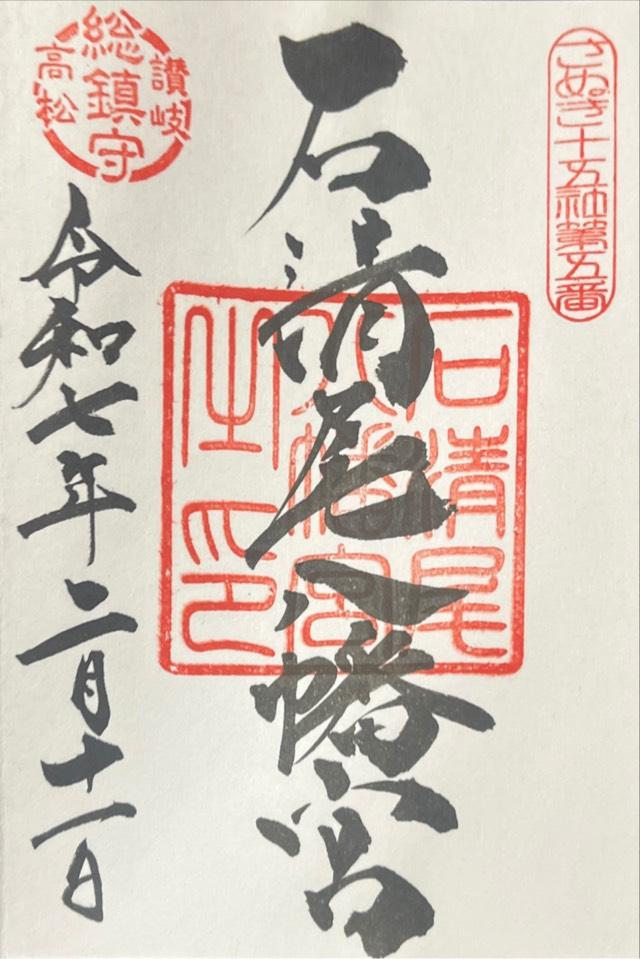 さぬき十五社第五番
石清尾八幡宮
石清尾
八幡宮
之印
讃岐
総鎮守
高松
令和七年二月十一日